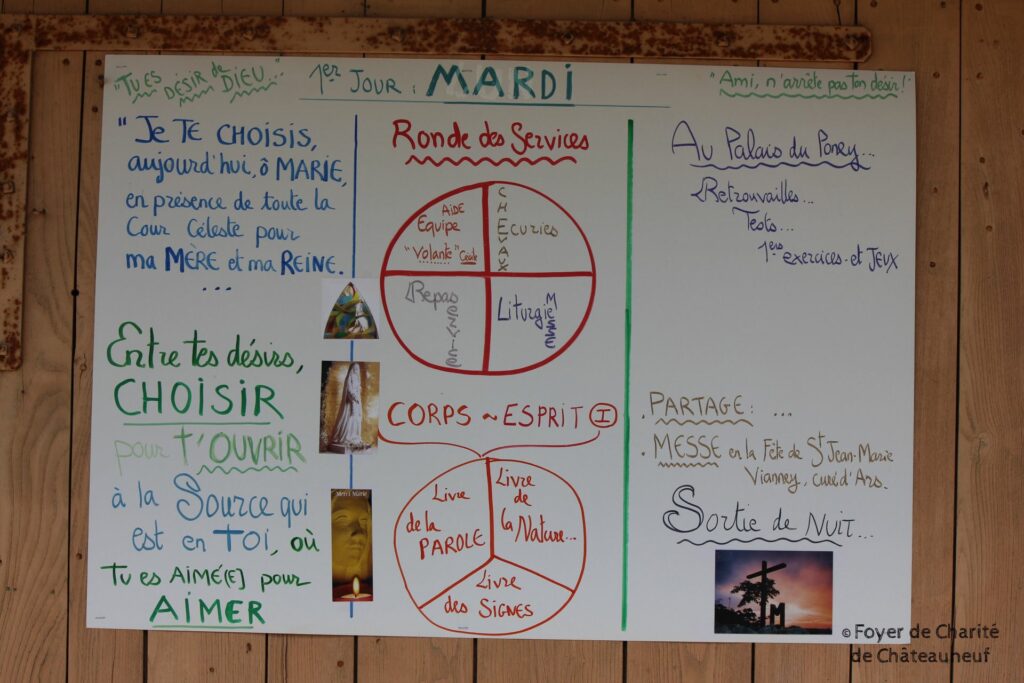 "TU ES DÉSIR de DIEU..."
1er JOUR : MARDI
"Ami, n'arrête pas ton désir!
"JE TE CHOISIS,
aujourd'hui, ô MARIE,
en présence de toute la
Cour Céleste pour
ma MÈRE et ma REINE.
...
Entre tes désirs,
CHOISIR
pour t'OUVRIR
à la Source qui
est en TOI, où
Tu es AIMÉ(E) pour
AIMER
Merci Marie
Ronde des Services
AIDE
Equipe
"Volante" Cécile
CHEVAUX
Ecuries
Repas
SERVICE
Liturgie
MESSE
CORPS ~ ESPRIT I
Livre
de la
PAROLE
Livre
de
la Nature...
Livre
des SIGNES
Au Palais du Poney...
Retrouvailles...
Tests...
1ers exercices et JEUX
. PARTAGE : ...
. MESSE en la Fête de St Jean-Marie
Vianney, curé d'Ars.
Sortie de NUIT...
M
© Foyer de Charité
de Châteauneuf